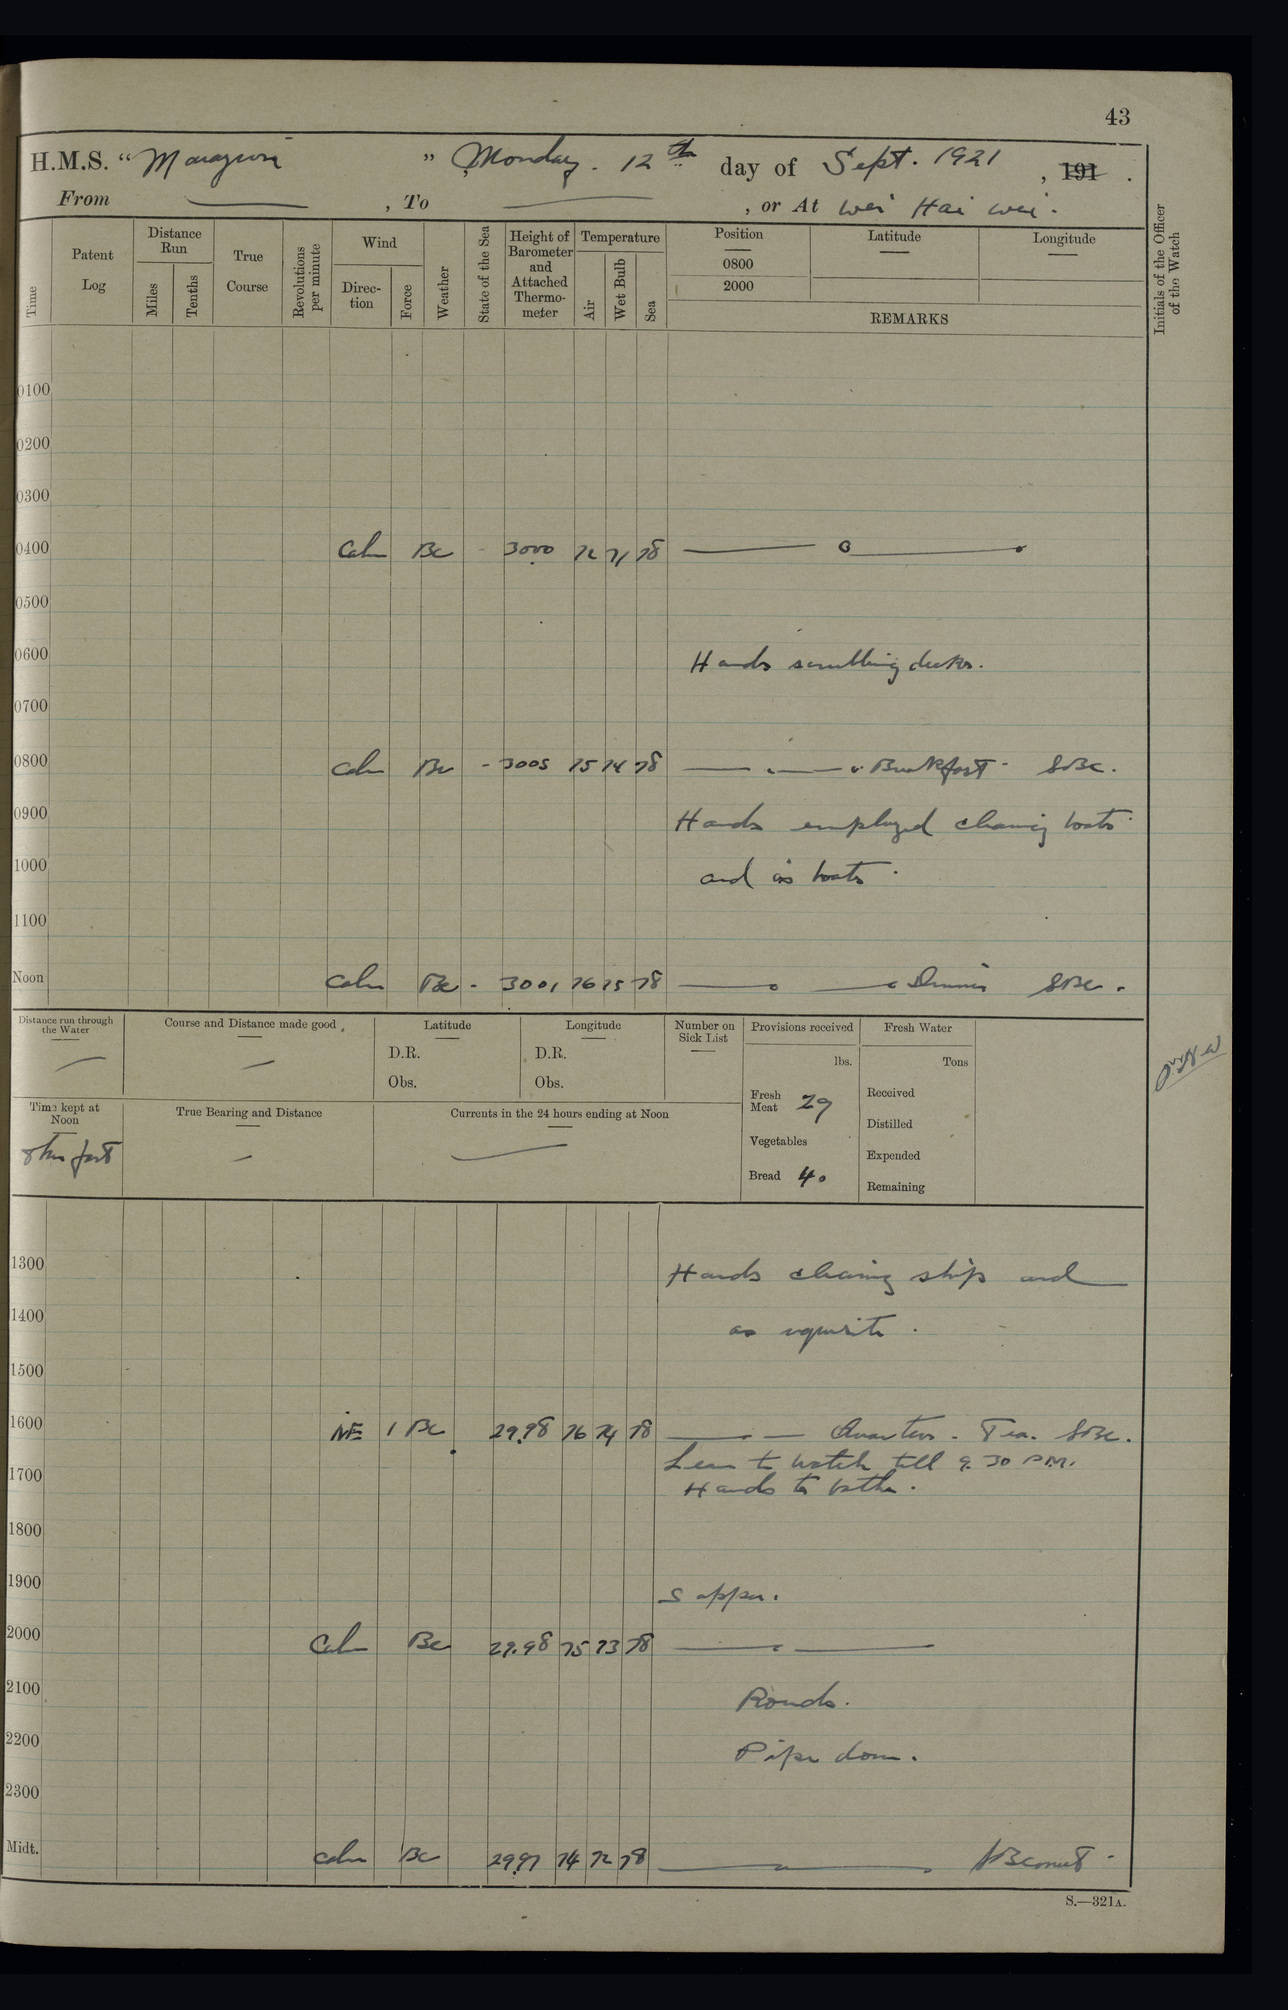 43
H.M.S. “ ” Monday. 12th day of Sept. 1921, 191 .
From , To , or At Wei Hai Wei.
Time
Patent Log
Distance Run
Miles
Tenths
True Course
Revolutions per minute
Wind
Direction
Force
Weather
State of the Sea
Height of Barometer and Attached Thermometer
Temperature
Air
Wet Bulb
Sea
Position
0800
2000
Latitude
Longitude
REMARKS
Initials of the Officer of the Watch
0100
0200
0300
0400 Calm Bc - 3000 72 71 78
0500
0600 Hands scrubbing decks.
0700
0800 Calm Bc - 3005 75 74 78 Breakfast. SBC.
0900 Hands employed cleaning boats
1000 and in boats.
1100
Noon Calm Bc - 3001 76 75 78 Dinner SBC.
Distance run through the Water
Course and Distance made good
Latitude
D.R.
Obs.
Longitude
D.R.
Obs.
Number on Sick List
Provisions received
lbs.
Fresh Meat 29
Vegetables
Bread 40
Fresh Water
Tons
Received
Distilled
Expended
Remaining
Time kept at Noon
8 hrs fast
True Bearing and Distance
Currents in the 24 hours ending at Noon
1300 Hands cleaning ship and
1400 as requisite.
1500
1600 NE 1 Bc 29.98 76 74 78 Quarters. Tea. SBC.
Leave to watch till 9.30 P.M.
1700 Hands to bathe.
1800
1900 Supper.
2000 Calm Bc 29.98 75 73 78
2100 Rounds.
2200 Pipe down.
2300
Midt. Calm Bc 29.97 74 72 78
S.—321A.